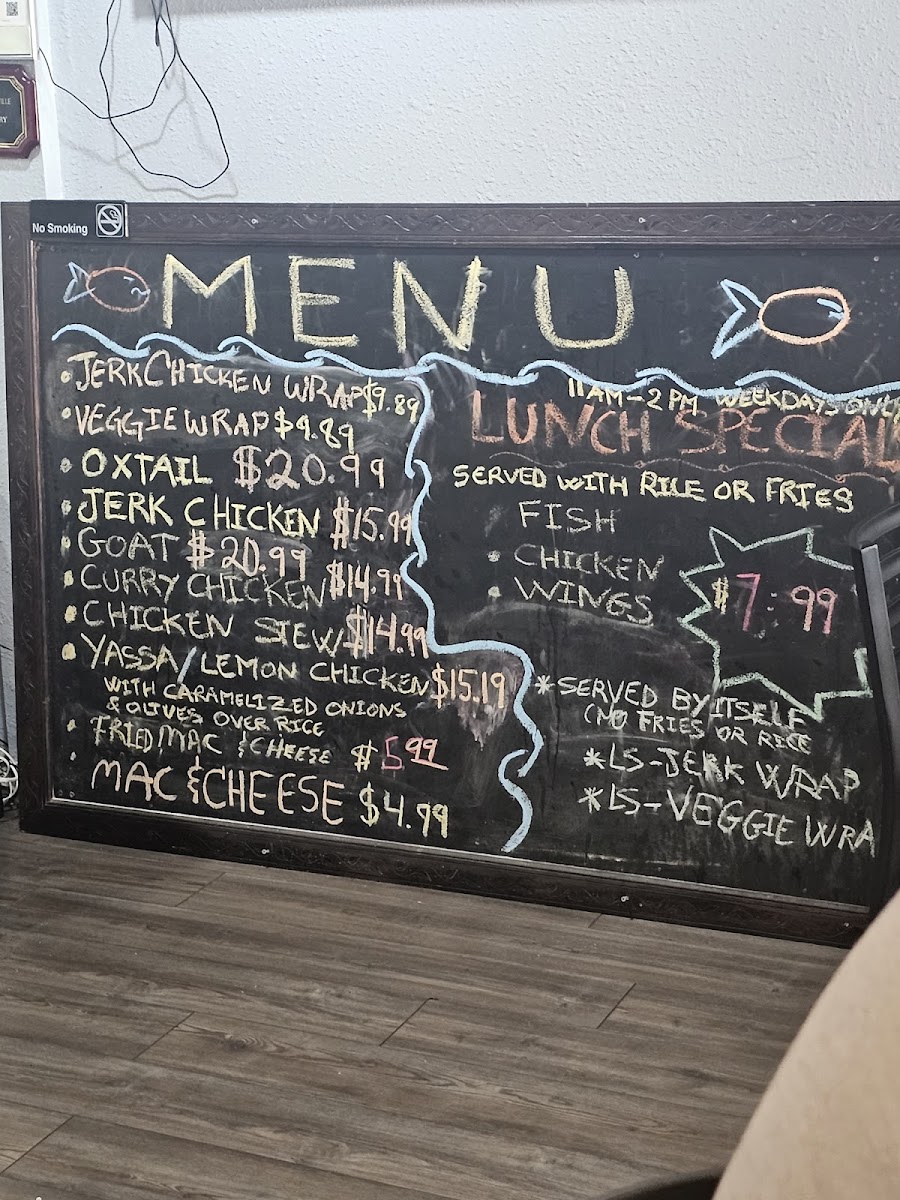 ILLE
RY
No Smoking
MENU
• JERK CHICKEN WRAP $9.89
• VEGGIE WRAP $9.89
• OXTAIL $20.99
• JERK CHICKEN $15.99
• GOAT $20.99
• CURRY CHICKEN $14.99
• CHICKEN STEW $14.99
• YASSA/LEMON CHICKEN $15.19
WITH CARAMELIZED ONIONS
& OLIVES OVER RICE
• FRIED MAC & CHEESE $5.99
MAC & CHEESE $4.99
11AM-2PM WEEKDAYS ONLY
LUNCH SPECIAL
SERVED WITH RICE OR FRIES
FISH
• CHICKEN
• WINGS
$7.99
*SERVED BY ITSELF
(NO FRIES OR RICE
*LS-JERK WRAP
*LS-VEGGIE WRA